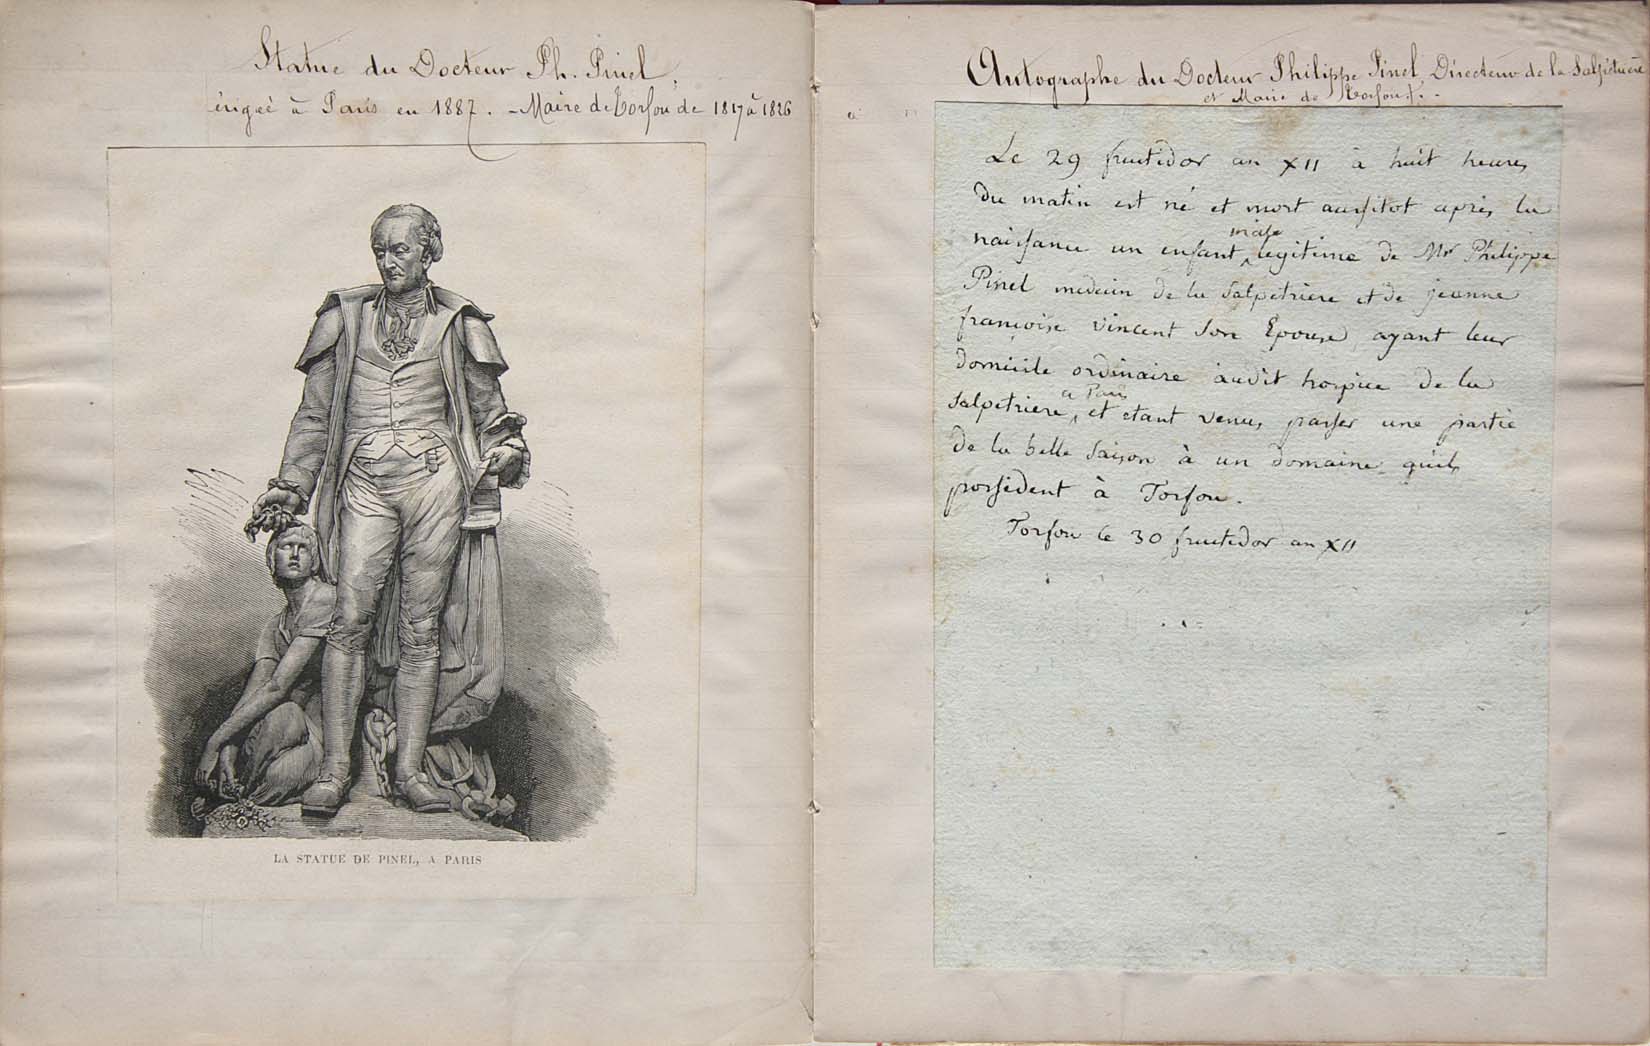 Statue du Docteur Ph. Pinel,
érigée à Paris en 1887. - Maire de Torfou de 1817 à 1826
LA STATUE DE PINEL, A PARIS
Autographe du Docteur Philippe Pinel, Directeur de la Salpétrière
et Maire de Torfou.
Le 29 fructidor an XII à huit heures
du matin est né et mort aussitot après la
naissance un enfant male legitime de Mr Philippe
Pinel medecin de la Salpetriere et de jeanne
françoise vincent son Epouse, ayant leur
domicile ordinaire audit hospice de la
Salpetriere, a Paris et etant venus passer une partie
de la belle saison à un domaine quils
possèdent à Torfou.
Torfou le 30 fructidor an XII